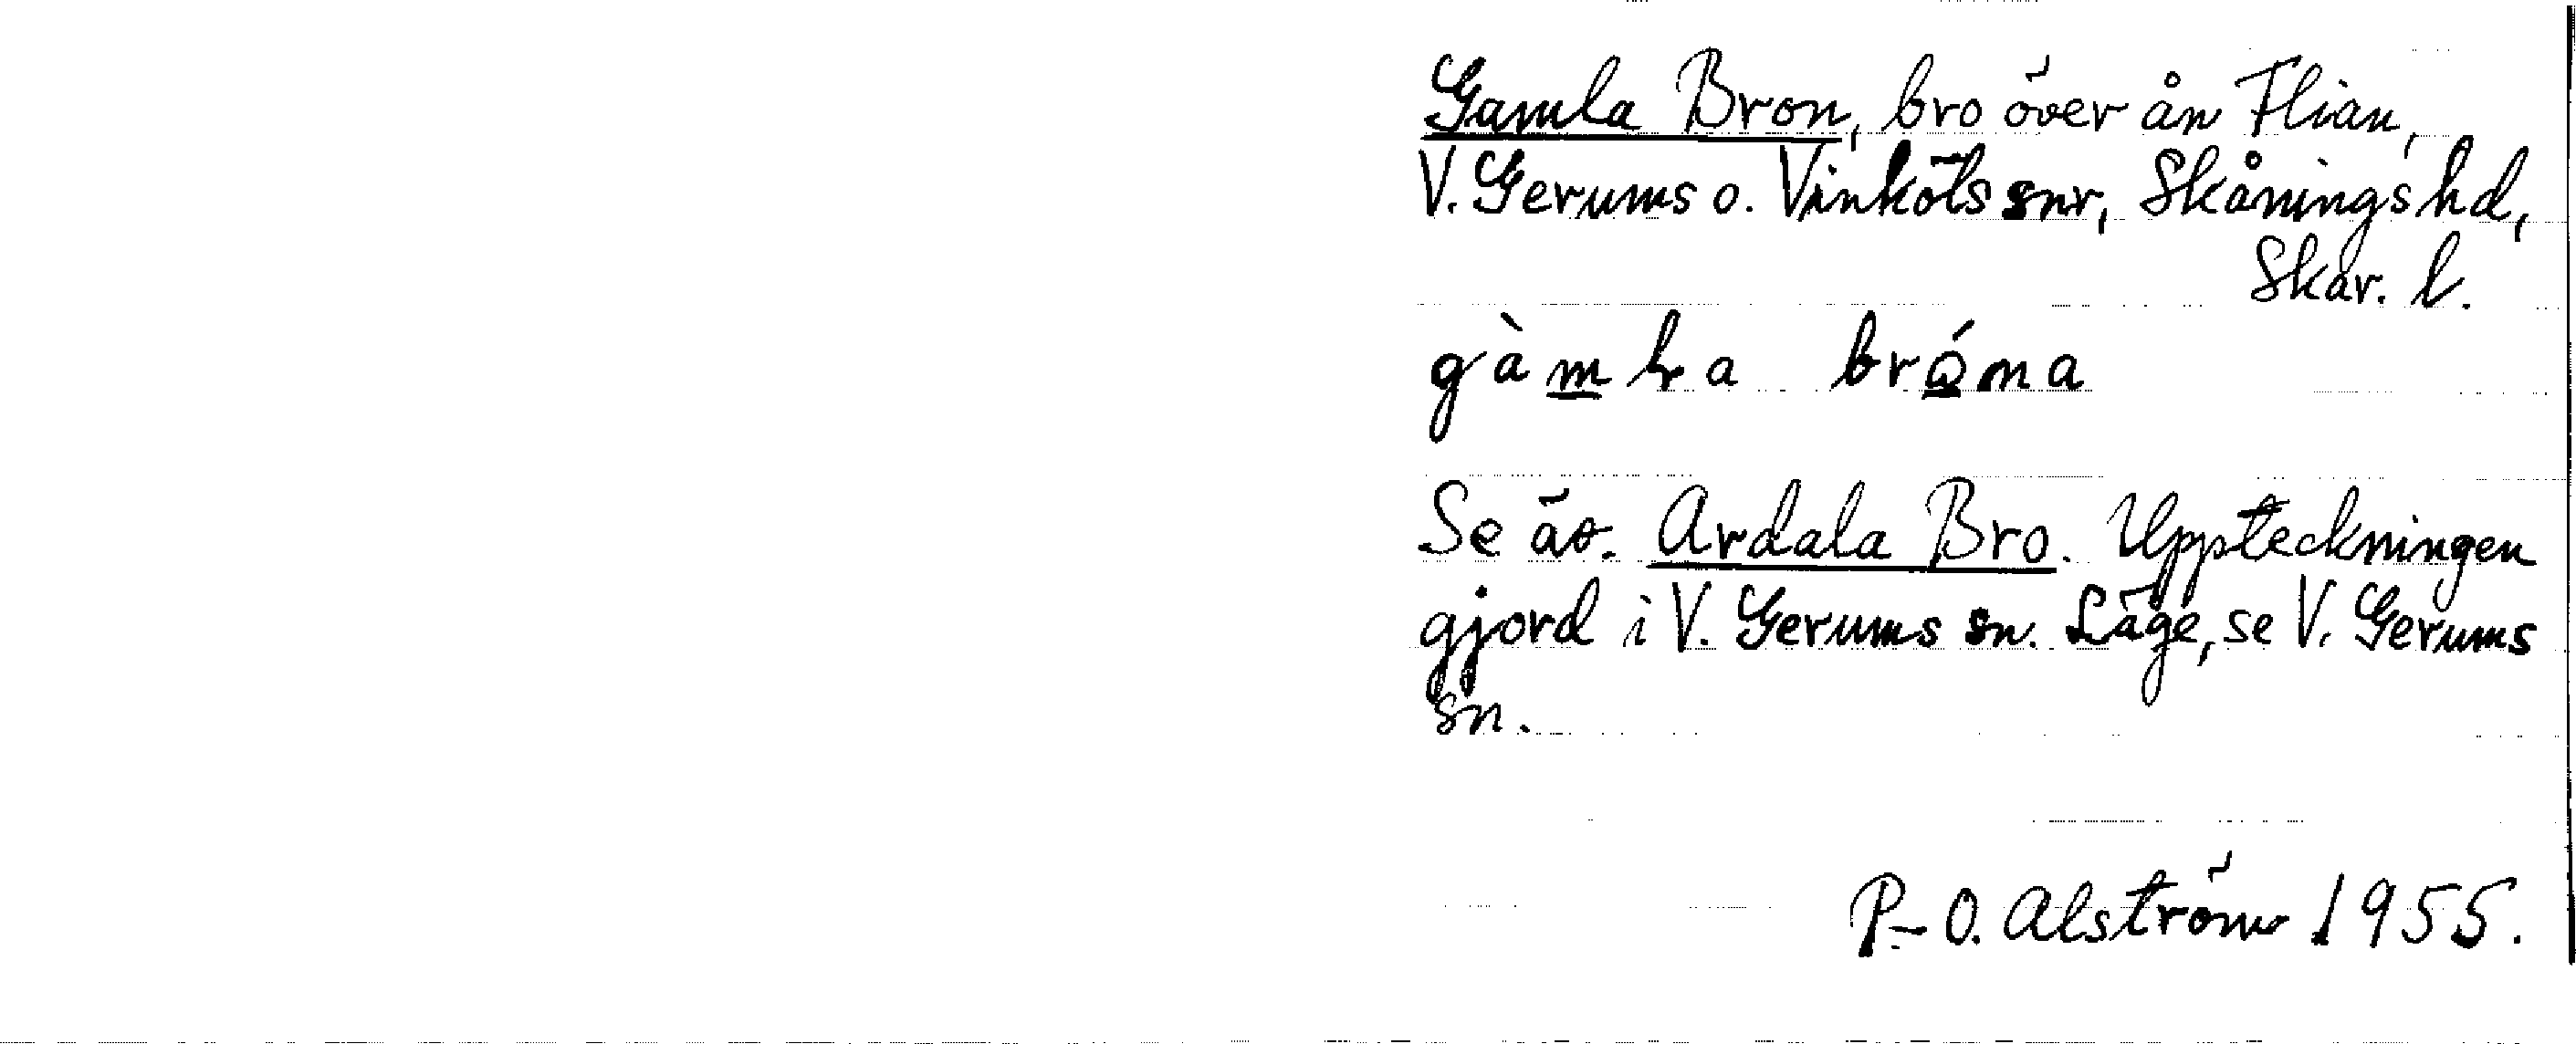 Gamla Bron, bro över ån Flian,
V. Gerums o. Vinköls snr, Skånings hd,
Skar. l.
gàmla bróna
Se äv. Ardala Bro. Uppteckningen
gjord i V. Gerums sn. Läge, se V. Gerums
sn.
P-O. Alström 1955.